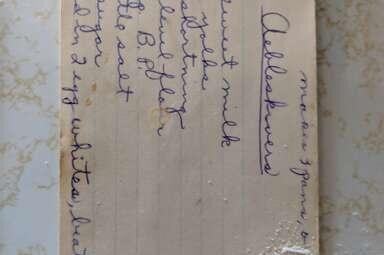 makes 3 pans, or
Aebleskivers
sweet milk
yolks
shortning
level flour
B. P.
salt
sugar
in 2 egg whites, beat